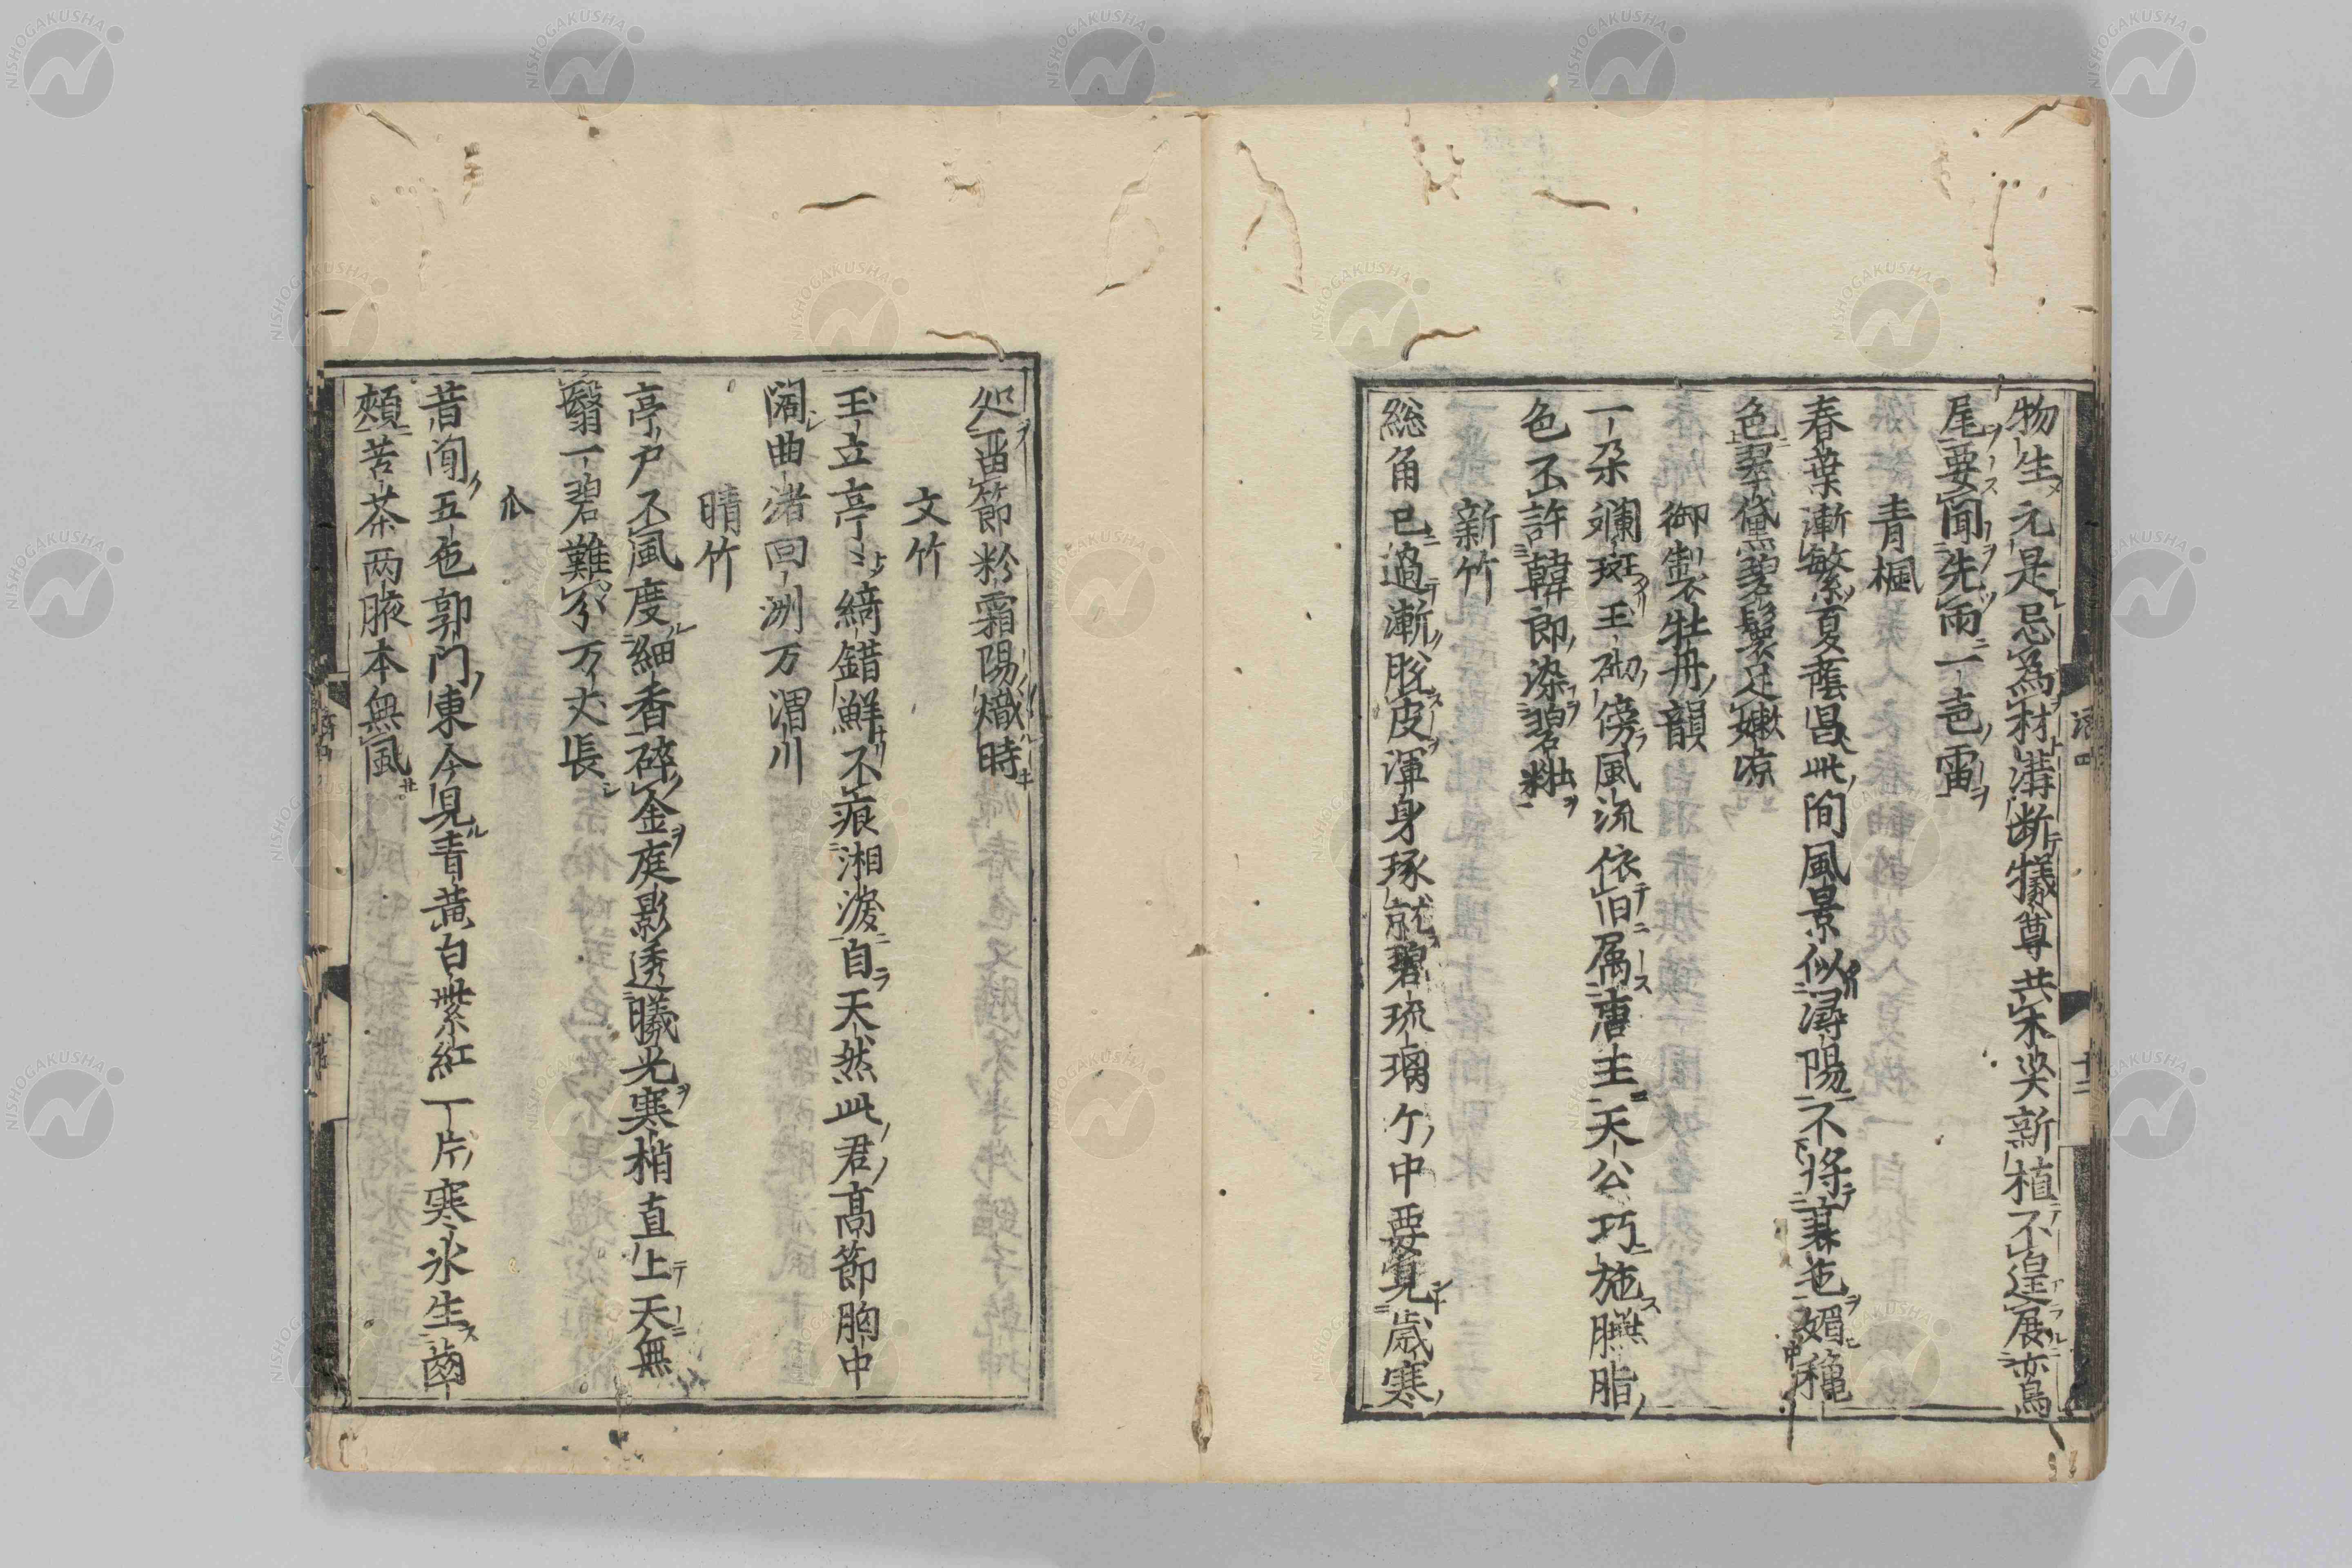 物生元是忌為材溝断犠尊共朱染新植不遑展鸞
尾要聞先雨一包雷
青楓
春葉漸繁夏蔭昌此間風景似潯陽不将裹也媚穐
色翠黛碧鬟足嫩涼
御製牡丹韻
一朶斕斑玉砌傍風流依旧属唐主天公巧施臙脂
色不許韓郎染碧粧
新竹
総角已過漸脱皮渾身琢就碧琉璃个中要見歳寒
処留節粉霜陽熾時
文竹
玉立亭〻綺錯鮮不痕湘涙自天然此君高節胸中
濶曲渚回洲万渭川
晴竹
亭戸不風度細香碎金庭影透曦光寒梢直上天無
翳一碧難分万丈長
瓜
昔聞五色郭門東今見青黄白紫紅一片寒氷生歯
頬苦茶两腋本無風